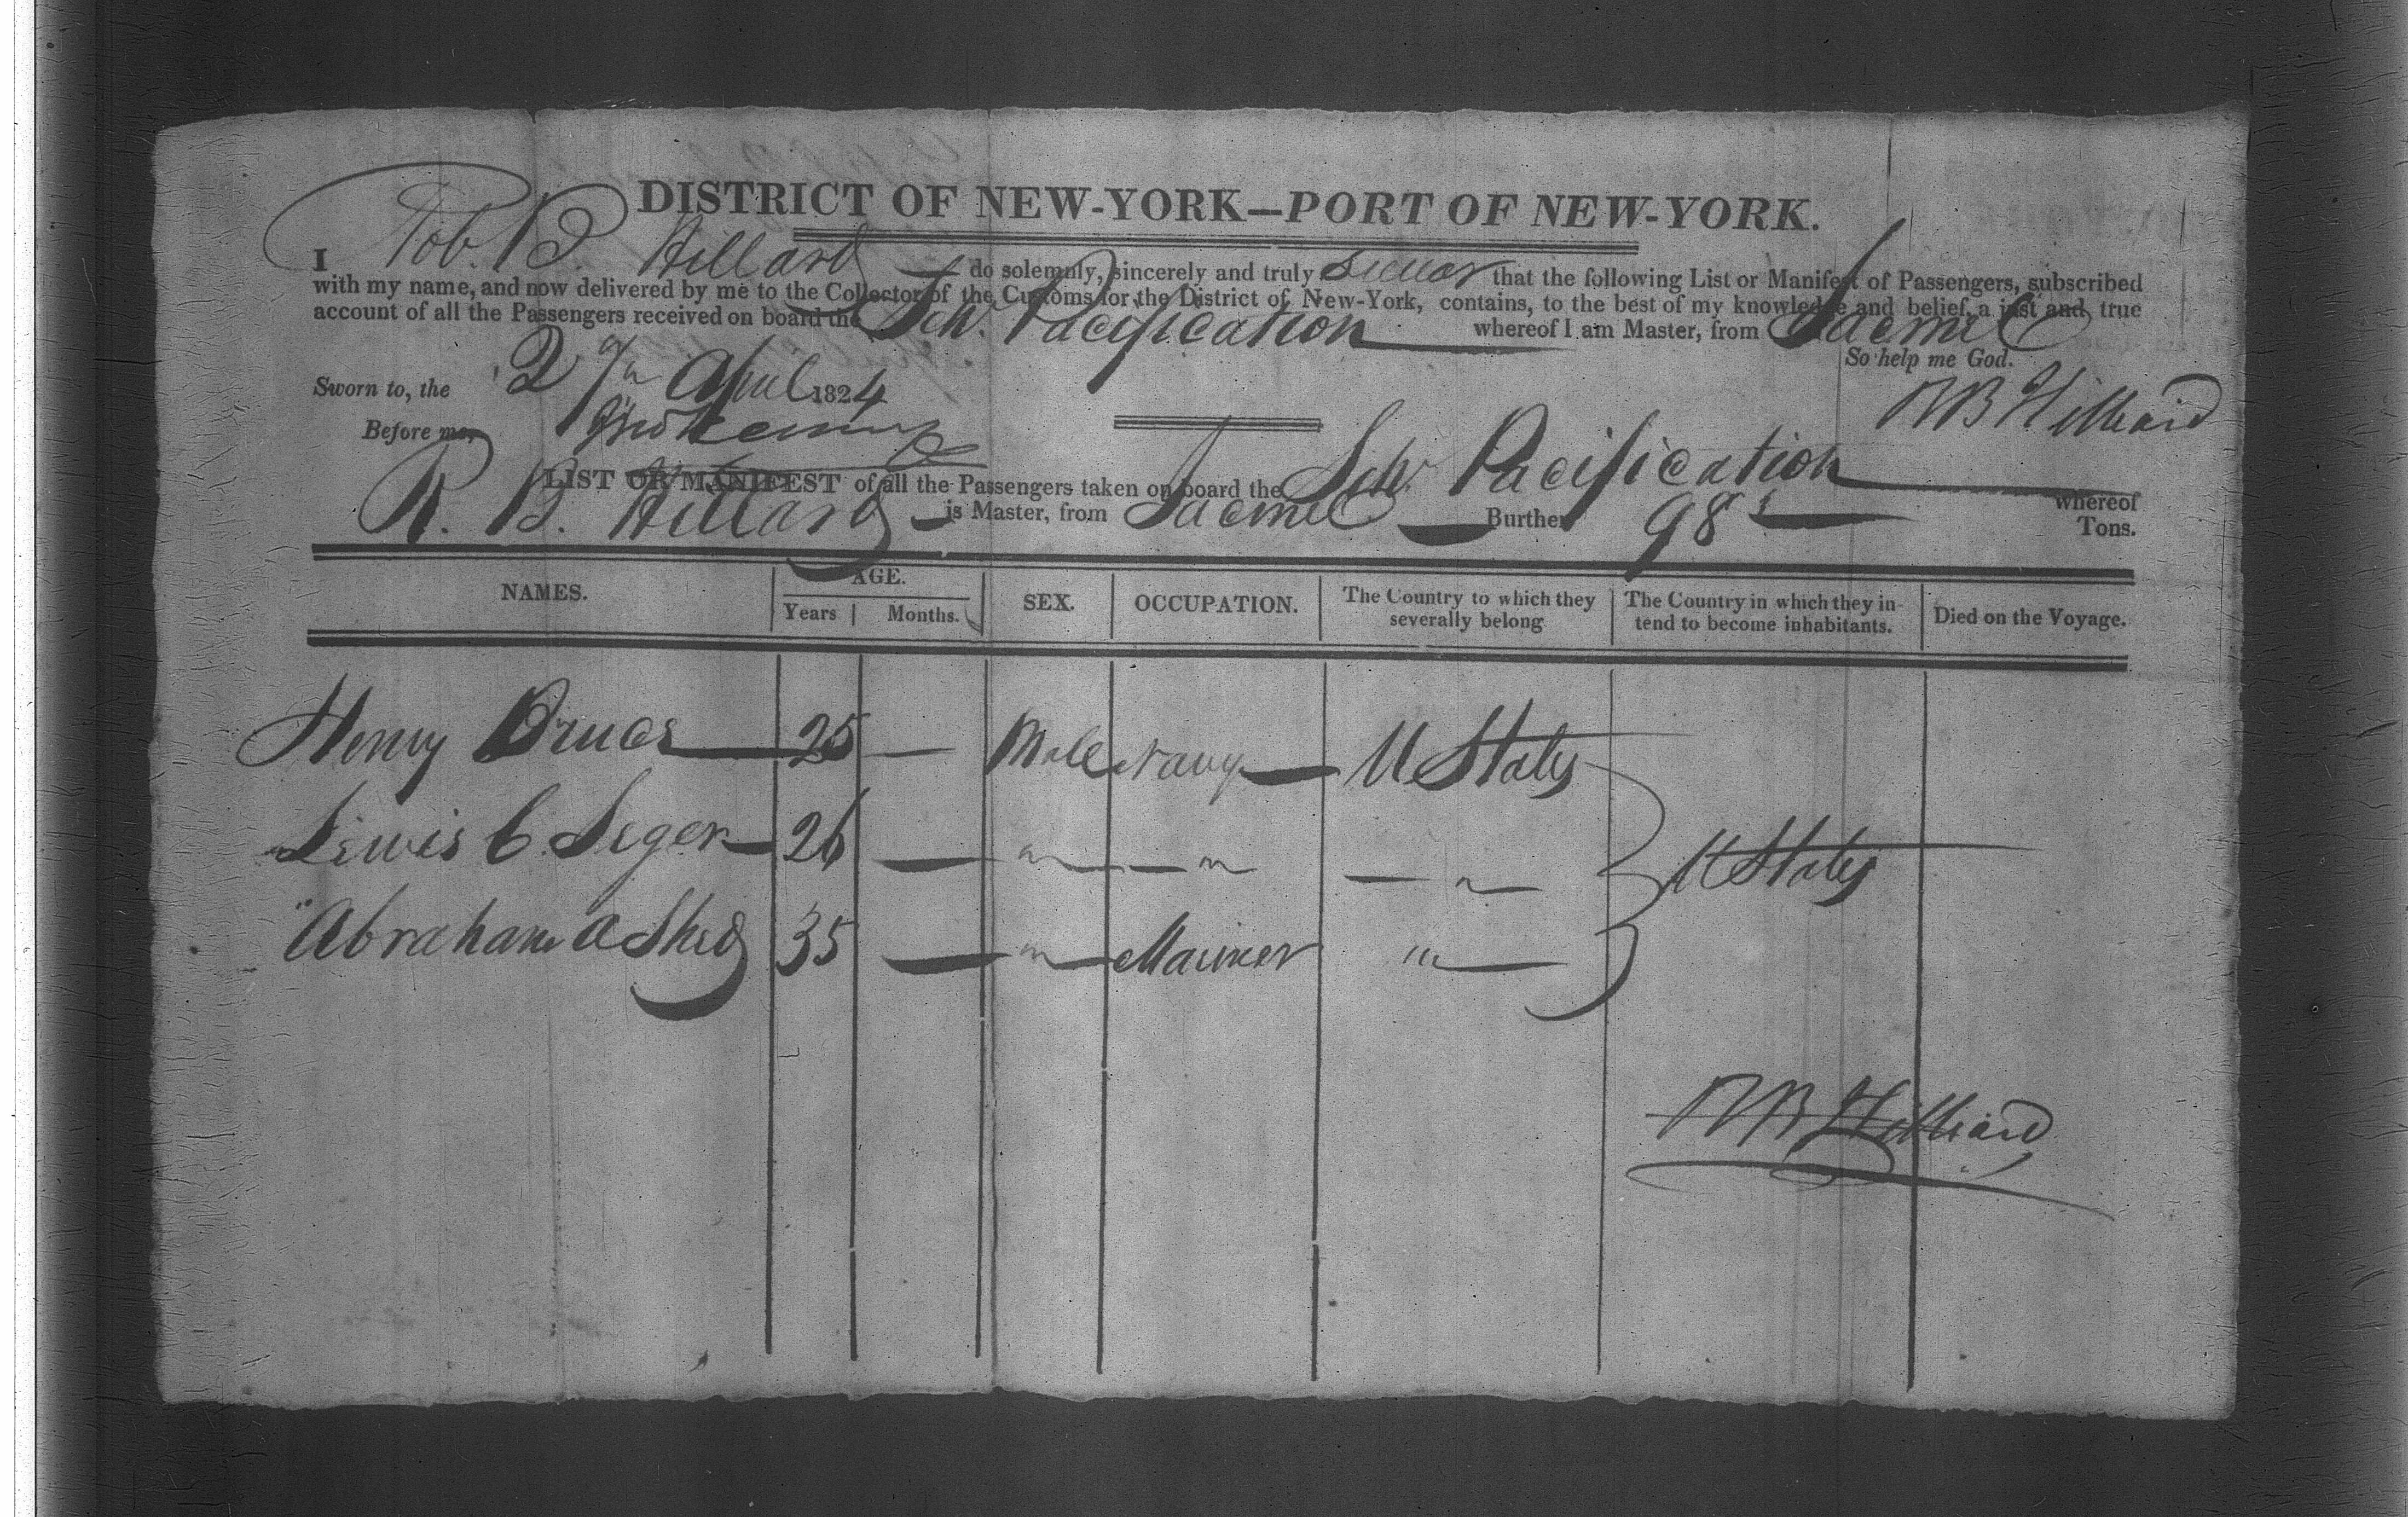 DISTRICT OF NEW-YORK—PORT OF NEW-YORK.
I Rob. B Hillard do solemnly, sincerely and truly swear that the following List or Manifest of Passengers, subscribed
with my name, and now delivered by me to the Collector of the Customs for the District of New-York, contains, to the best of my knowledge and belief, a just and true
account of all the Passengers received on board the Schr. Pacification whereof I am Master, from Jacmel
So help me God.
Sworn to, the 27th April 1824
RB Hilliard
Before me,
LIST OR MANIFEST of all the Passengers taken on board the Schr Pacification whereof
R. B. Hillard is Master, from Jacmel Burthen 98 Tons.
NAMES. AGE. SEX. OCCUPATION. The Country to which they severally belong The Country in which they intend to become inhabitants. Died on the Voyage.
Years Months.
Henry Bruce 25 — Male Navy U States
Lewis C. Seger 26 — " — " — " — U States
Abraham A Shed 35 — " Mariner "
RB Hilliard